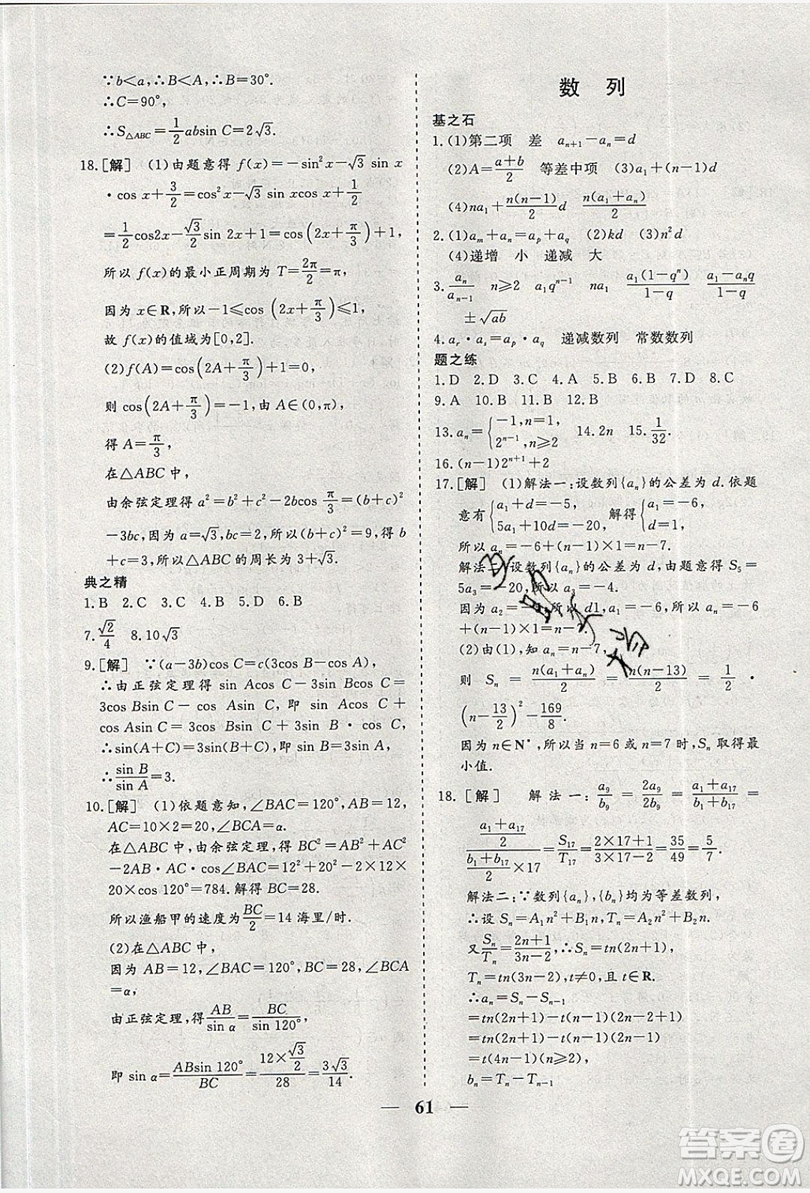 ∵b<a,∴B<A,∴B=30°.
∴C=90°,
∴S△ABC=1/2absin C=2√3.
18.[解] (1)由题意得 f(x)=-sin²x-√3 sin x
·cos x+3/2=cos²x-√3 sin xcos x+1/2
=1/2cos2x-√3/2sin 2x+1=cos(2x+π/3)+1
所以 f(x)的最小正周期为 T=2π/2=π.
因为 x∈R,所以-1≤cos(2x+π/3)≤1,
故 f(x)的值域为[0,2].
(2)f(A)=cos(2A+π/3)+1=0,
则 cos(2A+π/3)=-1,由 A∈(0,π),
得 A=π/3.
在△ABC中,
由余弦定理得 a²=b²+c²-bc=(b+c)²
-3bc,因为 a=√3,所以(b+c)²=9,得 b+
c=3,所以△ABC 的周长为 3+√3.
典之精
1.B 2.C 3.C 4.D 5.D 6.B
7.√2/4 8.10√3
9.[解] ∵(a-3b)cos C=c(3cos B-cos A),
∴由正弦定理得 sin Acos C-3sin Bcos C=
3cos Bsin C- cos Asin C,即 sin Acos C +
cos Asin C=3sin Bcos C+3cos B·sin C,
∴sin(A+C)=3sin(B+C),即 sin B=3sin A,
∴sin B/sin A=3.
10.[解] (1)依题意知,∠BAC=120°,AB=12,
AC=10×2=20,∠BCA=α.
在△ABC 中,由余弦定理得 BC²=AB²+AC²
-2AB·AC·cos∠BAC=12²+20²-2×12×
20×cos 120°=784. 解得 BC=28.
所以渔船甲的速度为BC/2=14 海里/时.
(2)在△ABC中,
因为 AB=12,∠BAC=120°,BC=28,∠BCA
=α,
由正弦定理得AB/sin α=BC/sin 120°.
即 sin α=ABsin 120°/BC=(12×√3/2)/28=3√3/14.
数 列
基之石
1.(1)第二项 差 aₙ₊₁-aₙ=d
(2)A=(a+b)/2 等差中项 (3)a₁+(n-1)d
(4)na₁+n(n-1)/2 d n(a₁+aₙ)/2
2.(1)aₘ+aₙ=aₚ+a_q (2)kd (3)n²d
(4)递增 小 递减 大
3.aₙ/aₙ₋₁ n≥2 a₁qⁿ⁻¹ na₁ a₁(1-qⁿ)/(1-q) (a₁-aₙq)/(1-q)
±√ab
4.aᵣ·aₛ=aₚ·a_q 递减数列 常数数列
题之练
1.D 2.D 3.C 4.C 5.B 6.B 7.D 8.C
9.A 10.B 11.B 12.B
13.aₙ={-1,n=1, 2ⁿ⁻¹,n≥2 14.2n 15.1/32.
16.(n-1)2ⁿ⁺¹+2
17.[解] (1)解法一:设数列{aₙ}的公差为 d.依题
意有{a₁+d=-5, 5a₁+10d=-20, 解得{a₁=-6, d=1.
所以 aₙ=-6+(n-1)·1=n-7.
解法二:设数列{aₙ}的公差为 d,依题意得 S₅=
5a₃=-20,所以 a₃=-4.
因为 a₂=-5,所以 d1,a₁=-6,所以 aₙ=-6
+(n-1)·1=n-7.
(2)由(1),知 aₙ=n-7,a₁=-6,
则 Sₙ = n(a₁+aₙ)/2 = n(n-13)/2 = 1/2 ·
(n-13/2)²-169/8.
因为 n∈N*,所以当 n=6 或 n=7 时,Sₙ 取得最
小值.
18.[解] 解法一:a₉/b₉=2a₉/2b₉=(a₁+a₁₇)/(b₁+b₁₇)=
((a₁+a₁₇)/2)/((b₁+b₁₇)/2)×17=S₁₇/T₁₇=(2×17+1)/(3×17-2)=35/49=5/7.
解法二:∵数列{aₙ},{bₙ}均为等差数列,
∴设 Sₙ=A₁n²+B₁n,Tₙ=A₂n²+B₂n.
又Sₙ/Tₙ=(2n+1)/(3n-2),∴Sₙ=tn(2n+1),
Tₙ=tn(3n-2),t≠0,且 t∈R.
∴aₙ=Sₙ-Sₙ₋₁
=tn(2n+1)-t(n-1)(2n-2+1)
=tn(2n+1)-t(n-1)(2n-1)
=t(4n-1)(n≥2),
bₙ=Tₙ-Tₙ₋₁
61
答案圈
MXQE.COM